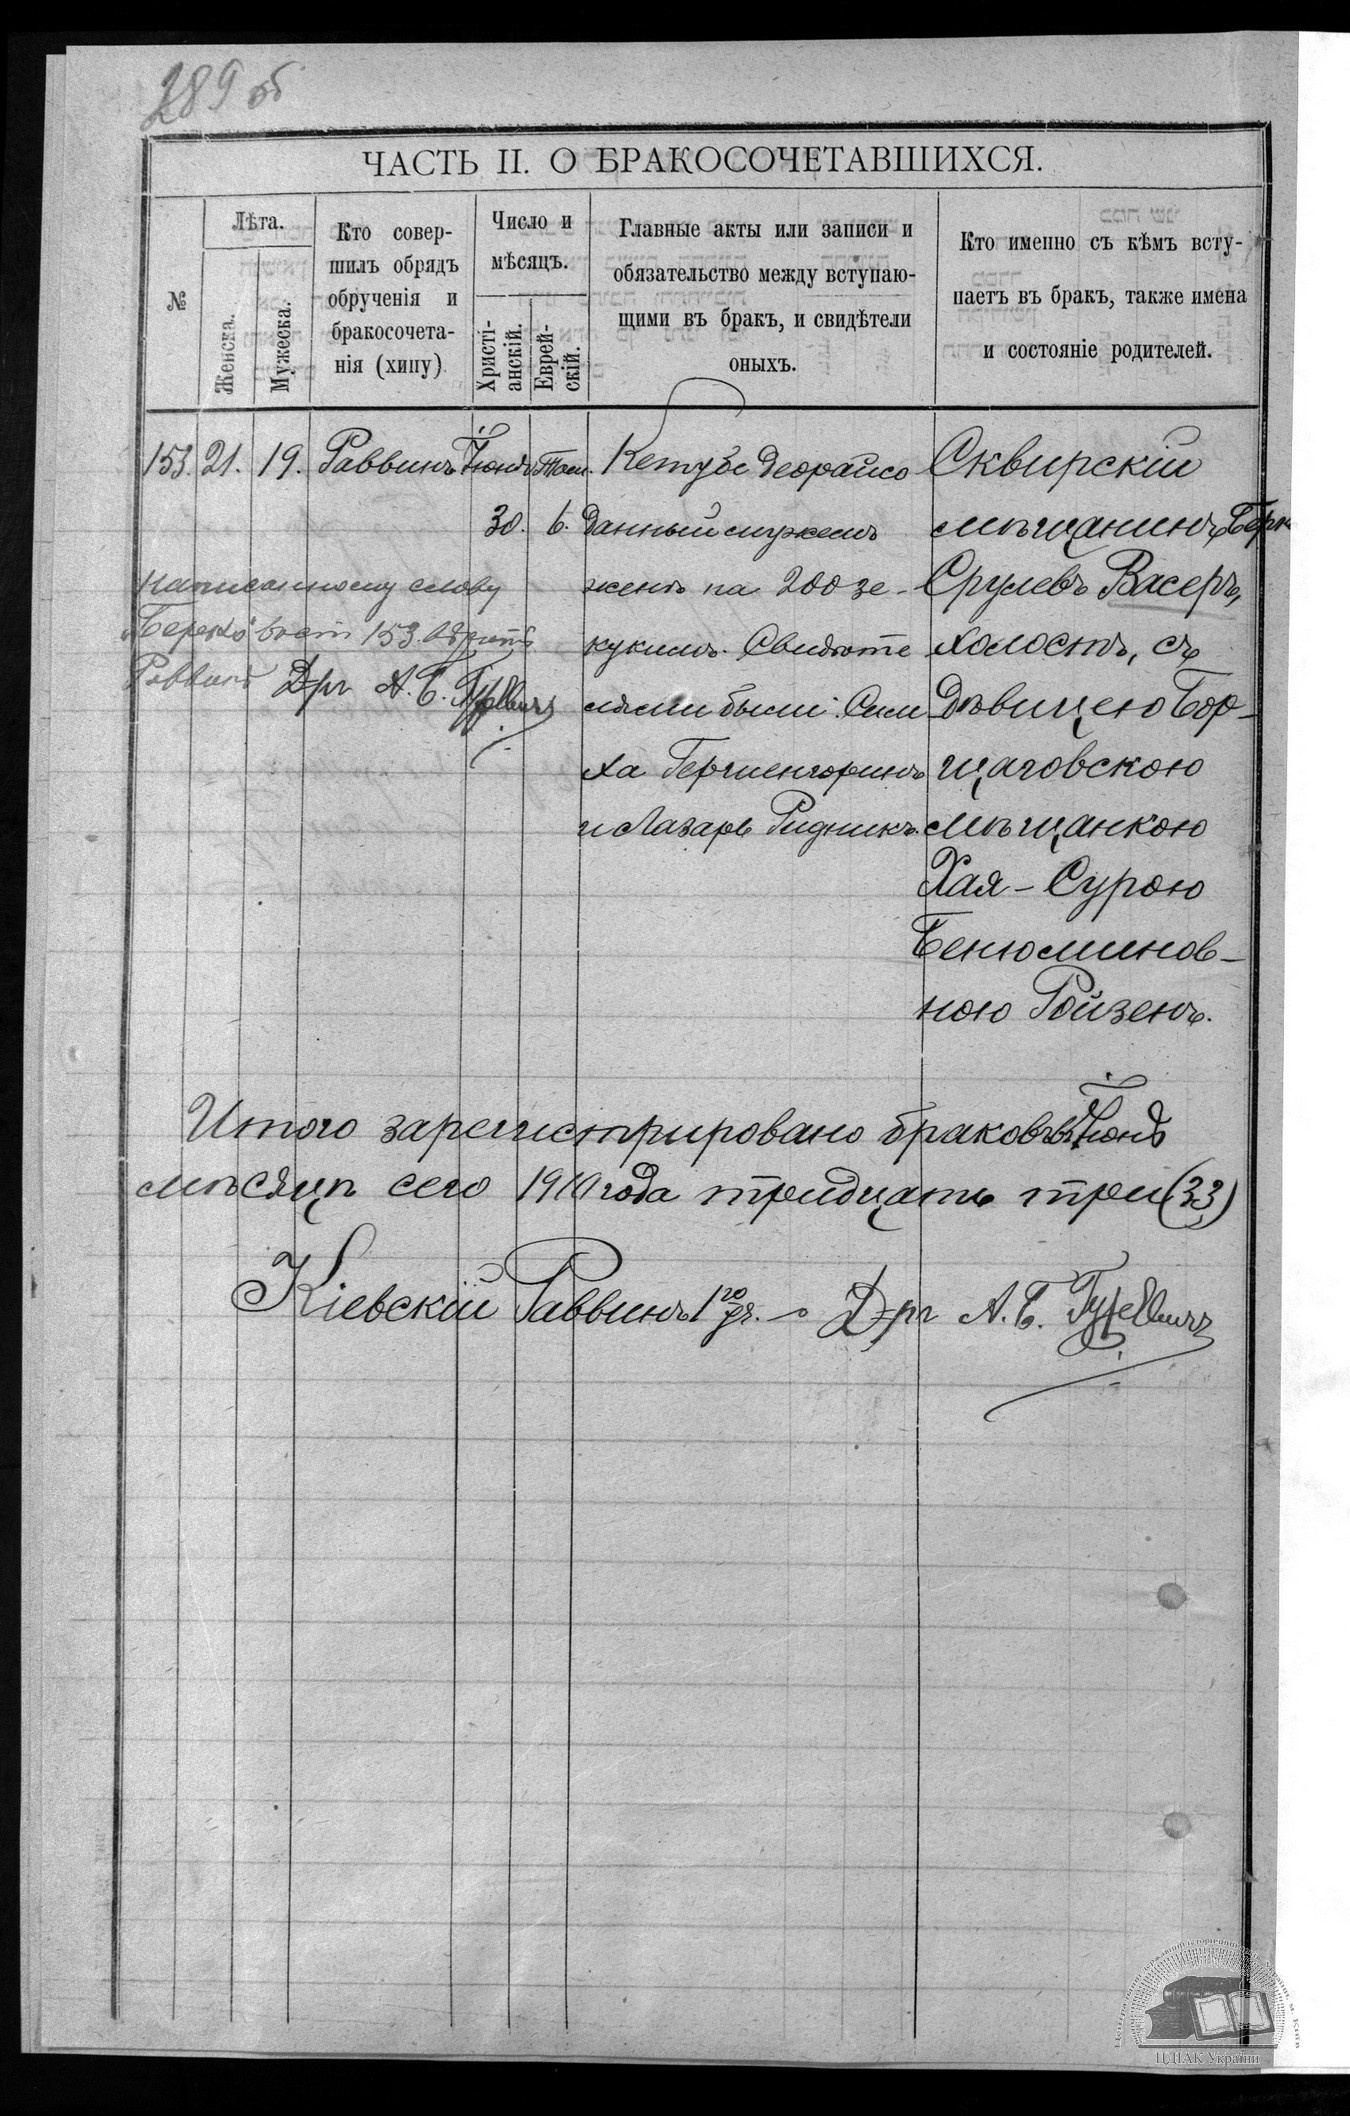 289 об
ЧАСТЬ II. О БРАКОСОЧЕТАВШИХСЯ.
№
Лѣта.
Женска.
Мужеска.
Кто совер-
шилъ обрядъ
обрученія и
бракосочета-
нія (хипу)
Число и
мѣсяцъ.
Христі-
анскій.
Еврей-
скій.
Главные акты или записи и
обязательство между вступаю-
щими въ бракъ, и свидѣтели
оныхъ.
Кто именно съ кѣмъ всту-
паетъ въ бракъ, также имена
и состояніе родителей.
153. 21. 19. Раввинъ Іюнь 30. 6.
Кетубе деорайсо
данный мужемъ
женѣ на 200 зе-
кукимъ. Свидѣте
лями были: Сим
ха
и Лазарь Рудникъ.
Сквирскій
мѣщанинъ Берко
Срулевъ Васеръ,
холостъ, съ
дѣвицею Бор-
щаговскою
мѣщанкою
Хая-Сурою
Бенюминов-
ною Ройзенъ.
написанному слову
"Берко" въ ст. 153. вѣрить
Раввинъ Д-ръ А. Б.
Итого зарегистрировано браковъ въ Іюнѣ
мѣсяцѣ сего 1910 года тридцать три (33)
Кіевскій Раввинъ 1го уч. Д-ръ А. Б.
ЦДІАК України